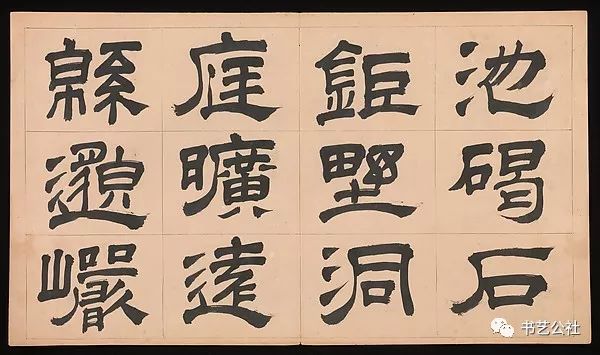 池碣石
鉅野洞
庭曠遠
緜邈巖
书艺公社